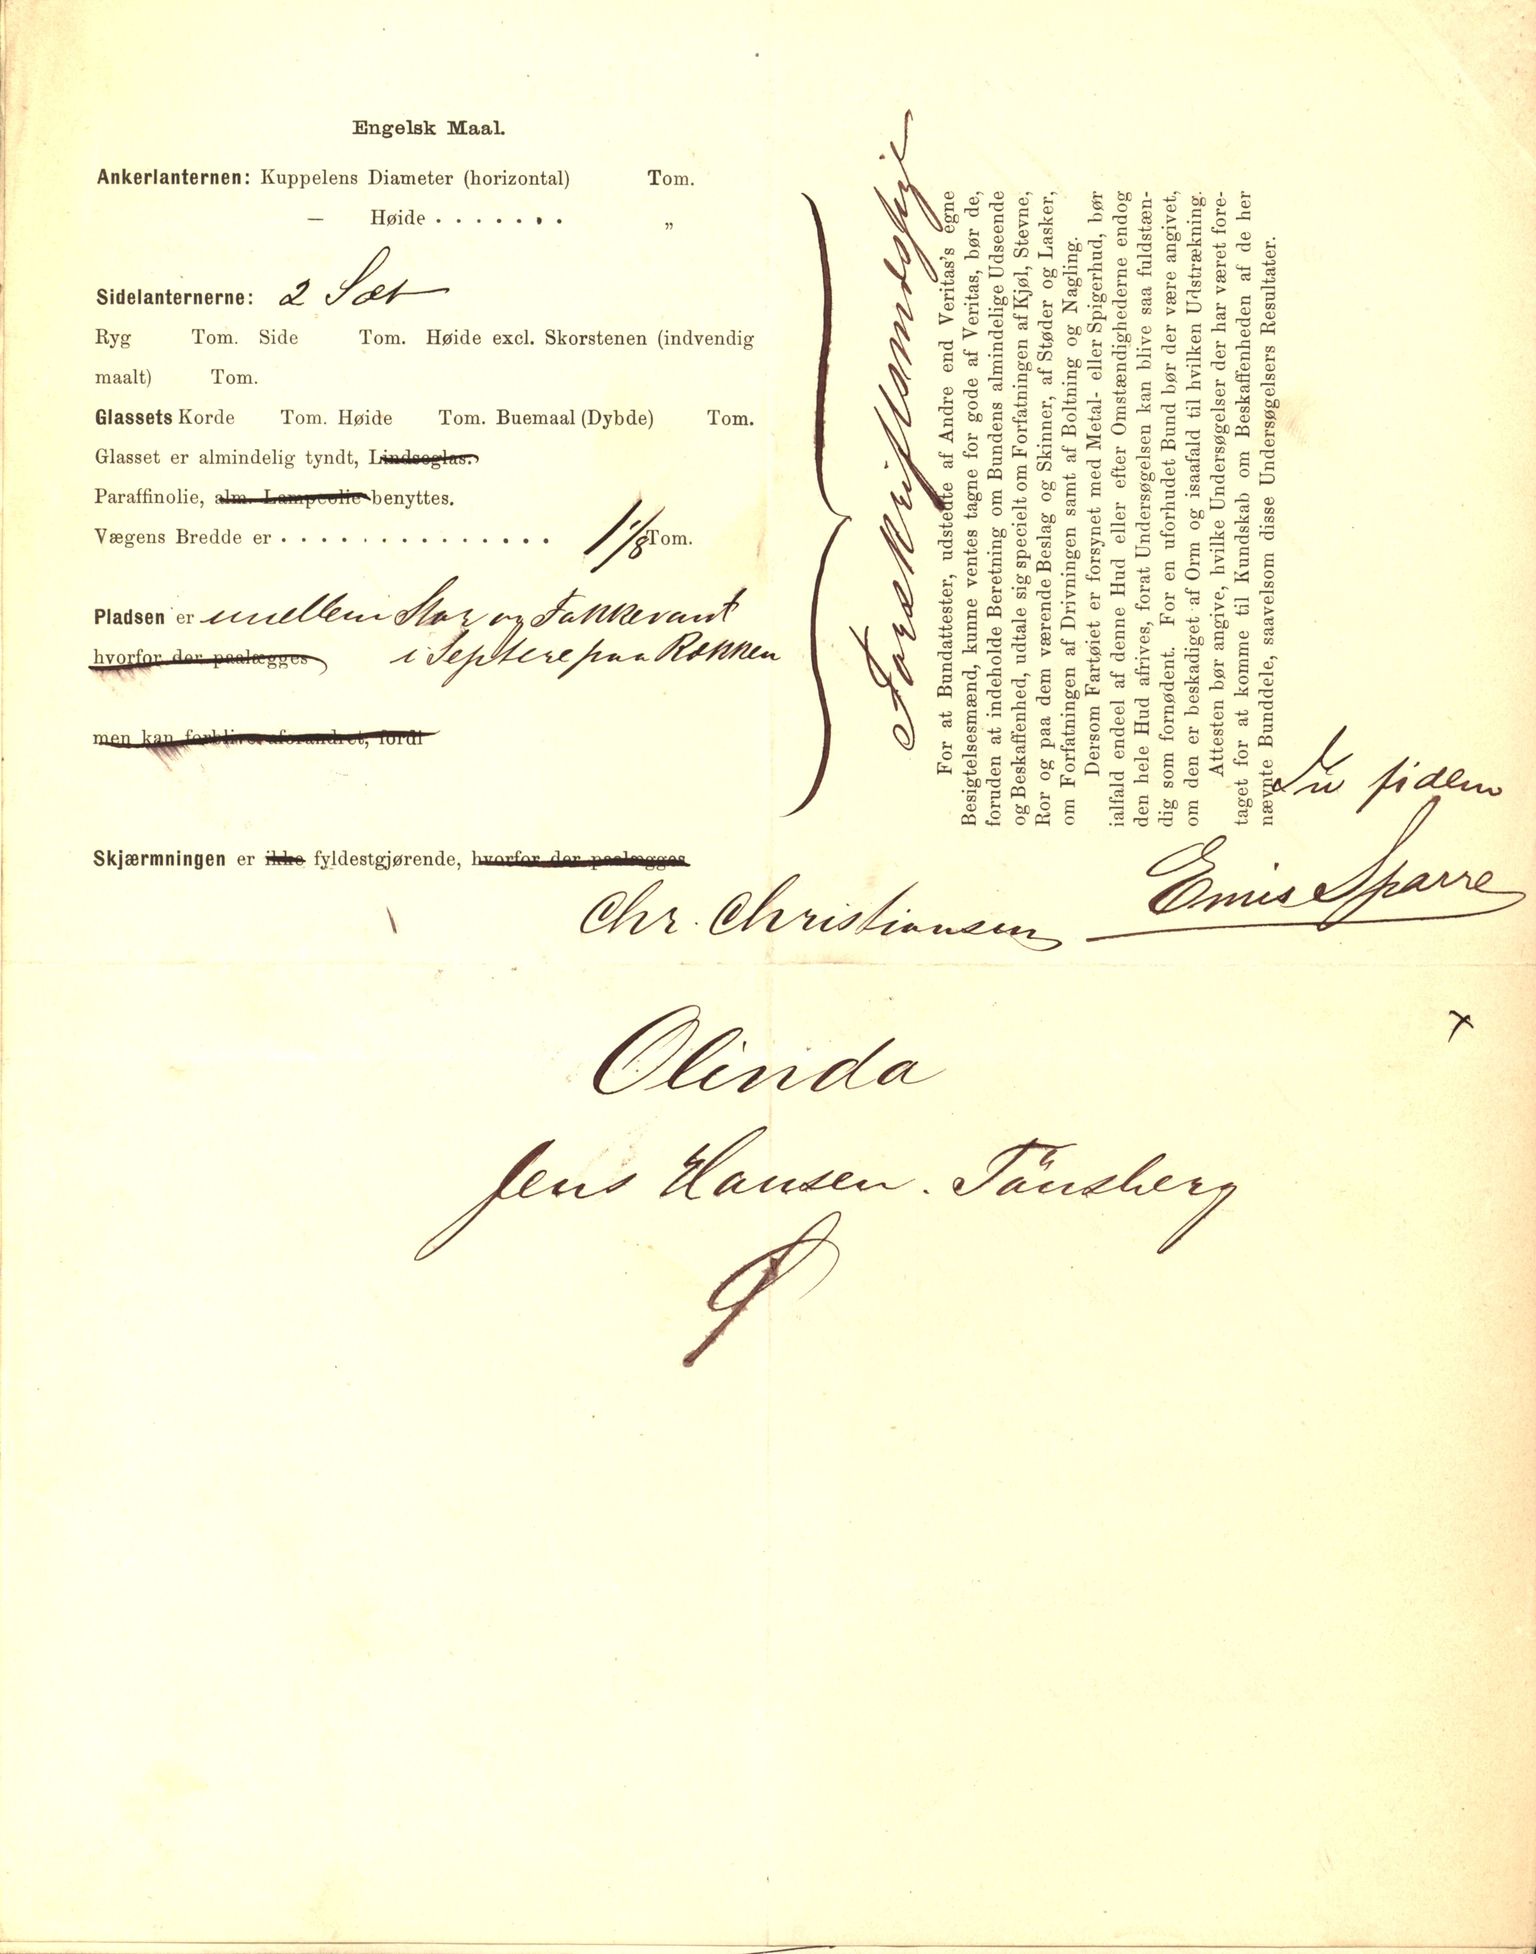 Engelsk Maal.
Ankerlanternen: Kuppelens Diameter (horizontal) Tom.
— Høide . . . . . . . „
Sidelanternerne: 2 Sæt
Ryg Tom. Side Tom. Høide excl. Skorstenen (indvendig
maalt) Tom.
Glassets Korde Tom. Høide Tom. Buemaal (Dybde) Tom.
Glasset er almindelig tyndt, Lindseglas.
Paraffinolie, alm. Lampeolie benyttes.
Vægens Bredde er . . . . . . . . . . . . . . 1 1/8 Tom.
Pladsen er mellem Stor og Fokkevant
hvorfor der paalægges i Septere paa Rækken
men kan forblive uforandret, fordi
Skjærmningen er ikke fyldestgjørende, hvorfor der paalægges
Forskriftsmæssige
For at Bundattester, udstedte af Andre end Veritas's egne
Besigtelsesmænd, kunne ventes tagne for gode af Veritas, bør de,
foruden at indeholde Beretning om Bundens almindelige Udseende
og Beskaffenhed, udtale sig specielt om Forfatningen af Kjøl, Stevne,
Ror og paa dem værende Beslag og Skinner, af Støder og Lasker,
om Forfatningen af Drivningen samt af Boltning og Nagling.
Dersom Fartøiet er forsynet med Metal- eller Spigerhud, bør
ialfald endeel af denne Hud eller efter Omstændighederne endog
den hele Hud afrives, forat Undersøgelsen kan blive saa fuldstæn-
dig som fornødent. For en uforhudet Bund bør der være angivet,
om den er beskadiget af Orm og isaafald til hvilken Udstrækning.
Attesten bør angive, hvilke Undersøgelser der har været fore-
taget for at komme til Kundskab om Beskaffenheden af de her
nævnte Bunddele, saavelsom disse Undersøgelsers Resultater.
In fidem
Chr. Christiansen
Sparre
Olinda
x
Jens Hansen. Tönsberg